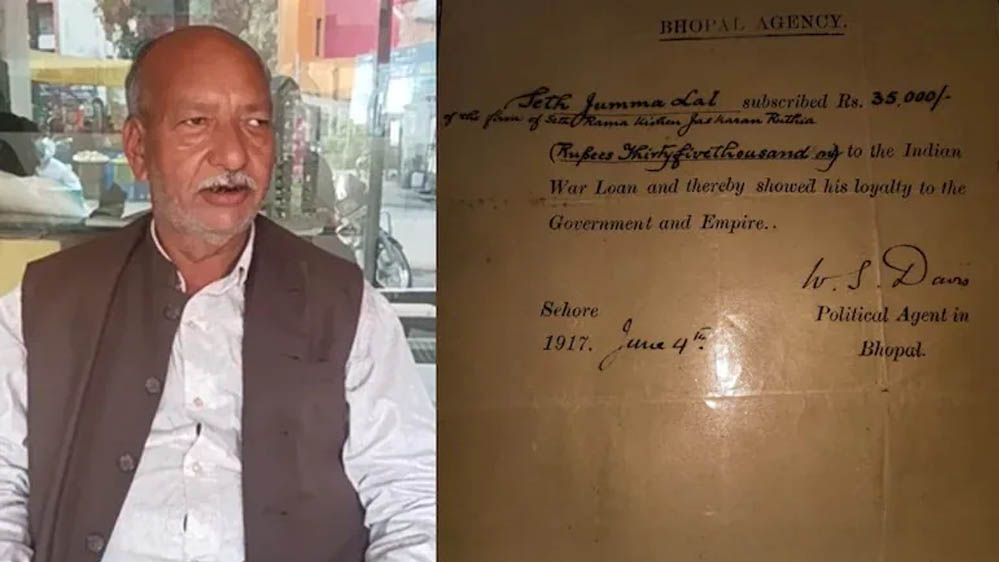 BHOPAL AGENCY.
Seth Jumma Lal subscribed Rs. 35,000/-
of the firm of Seth Rama Kishen Jaskaran Ruthia
(Rupees Thirtyfivethousand only) to the Indian
War Loan and thereby showed his loyalty to the
Government and Empire..
W. S. Davis
Sehore
Political Agent in
1917. June 4th.
Bhopal.